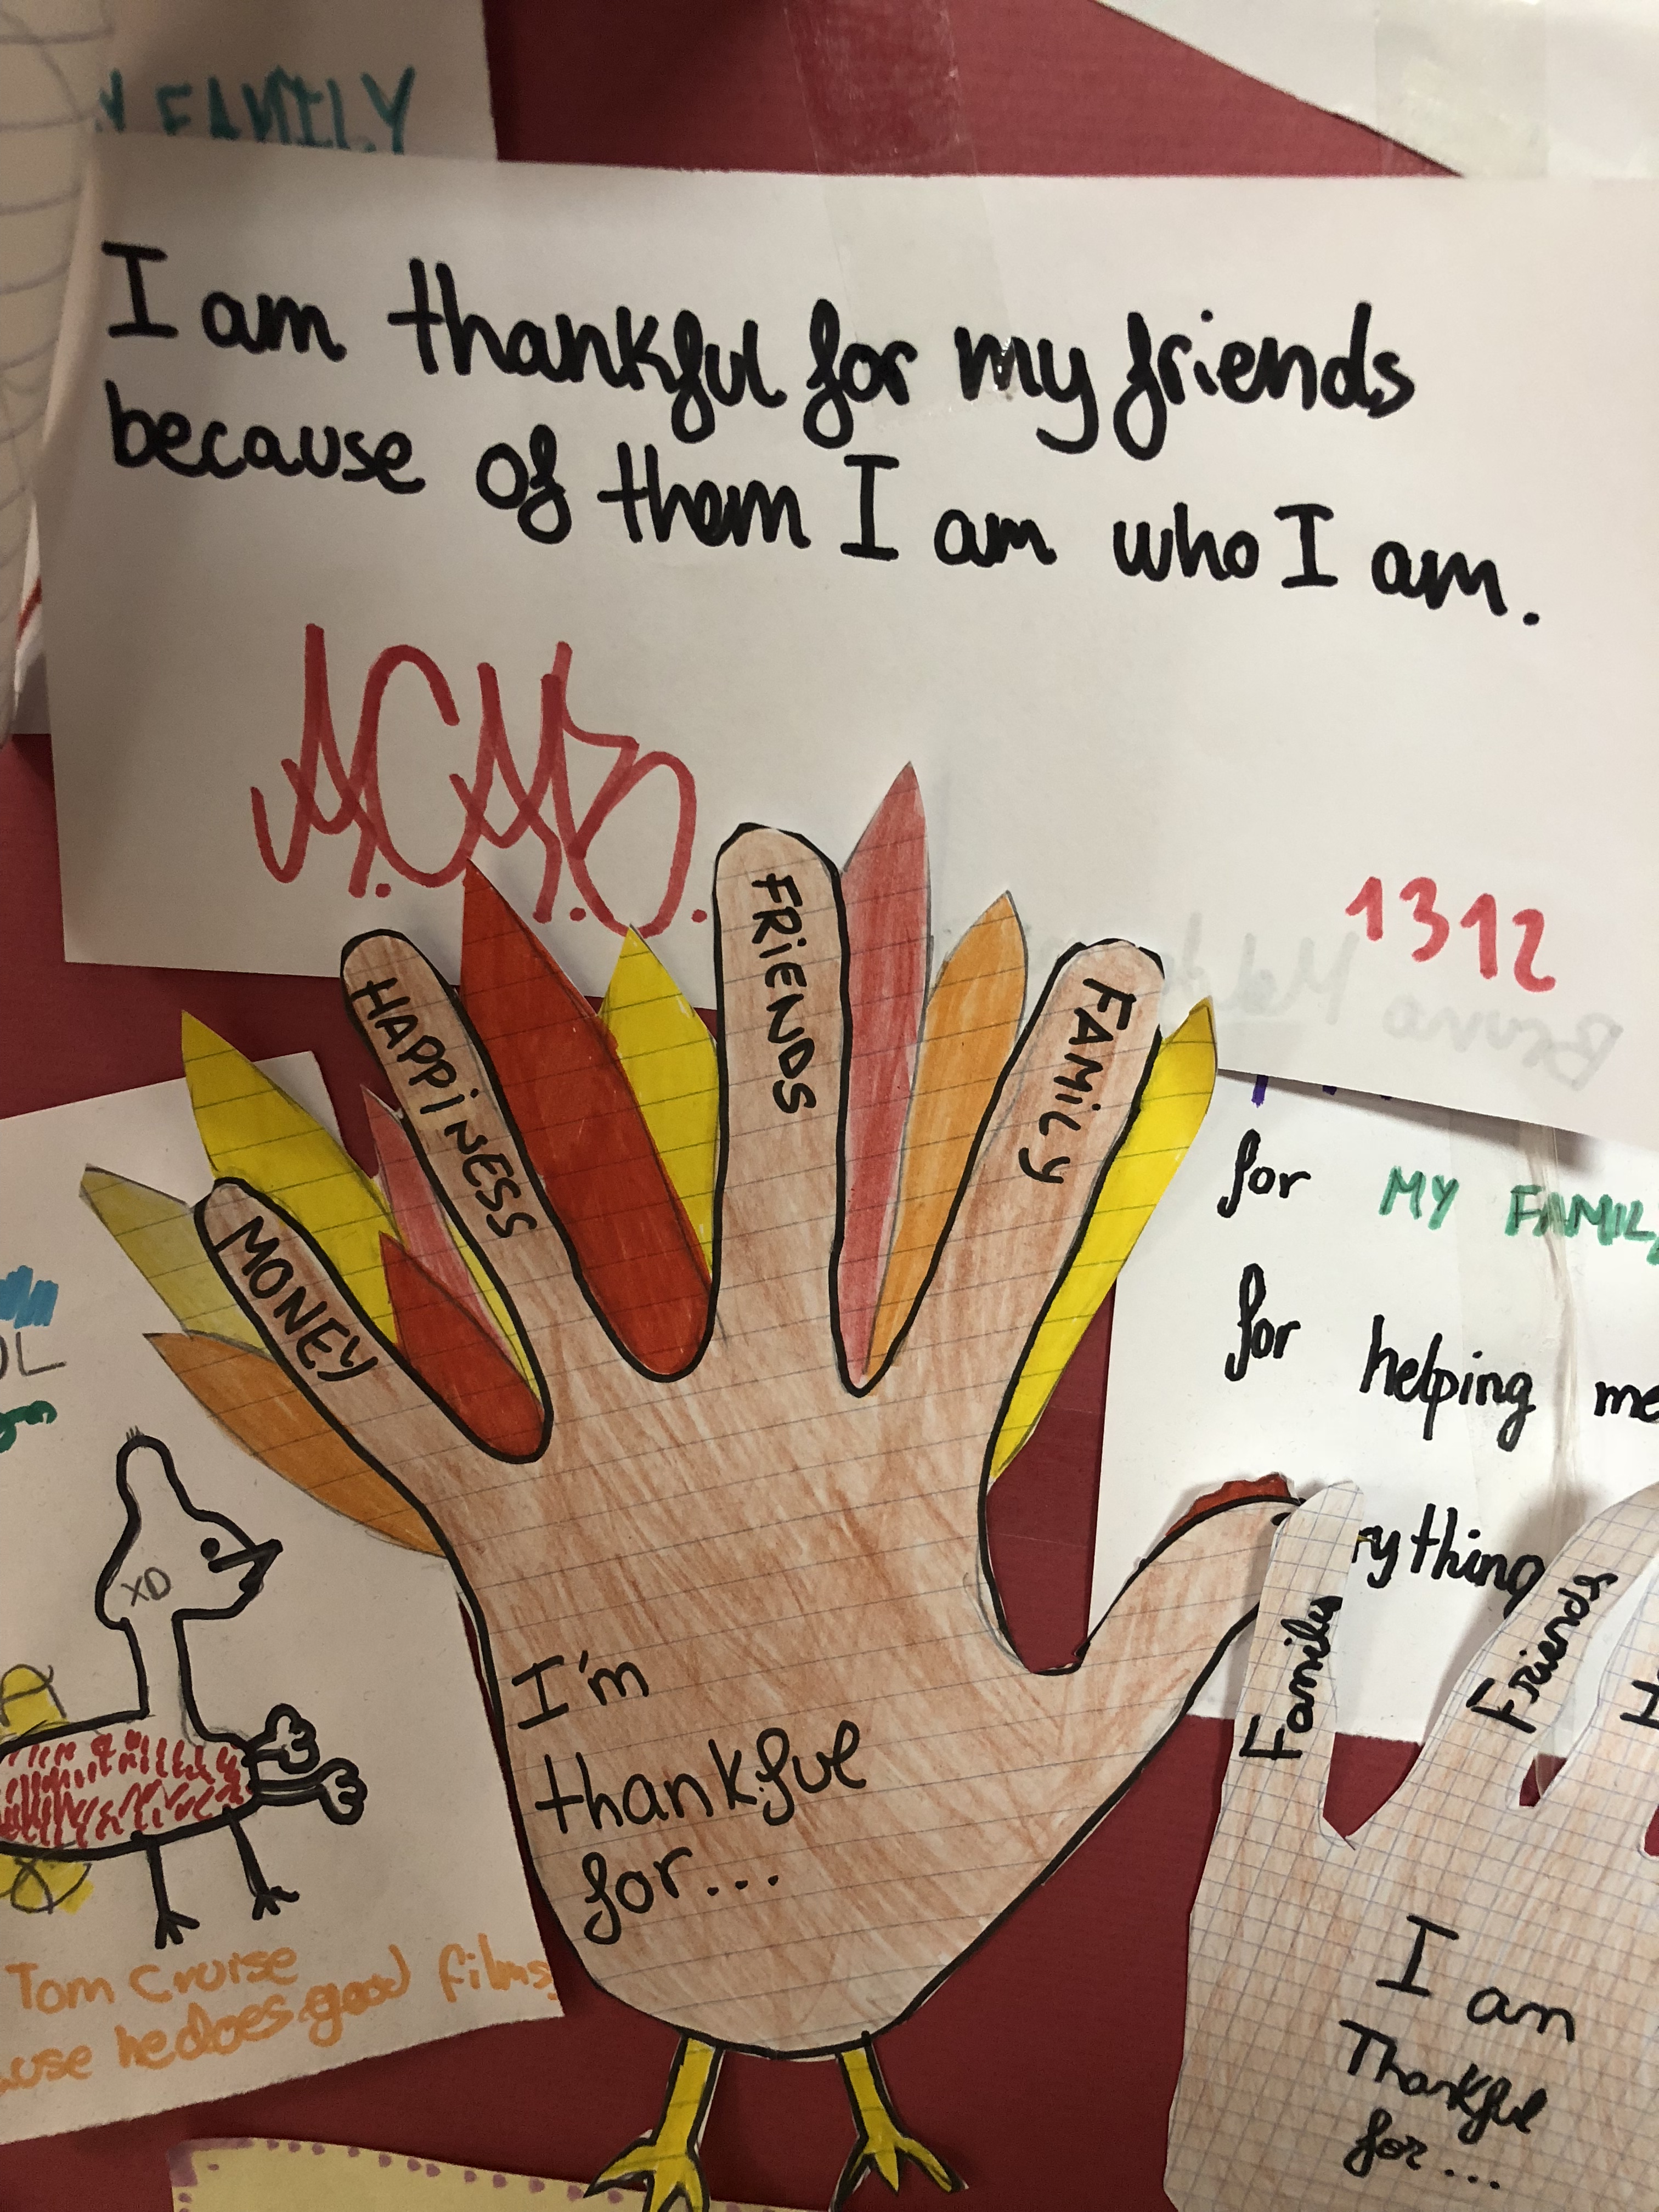 Y FAMILY
I am thankful for my friends
because of them I am who I am.
A.C.A.B.
1312
FRIENDS
FAMILY
HAPPINESS
MONEY
for MY FAMIL
for helping me
rything
I'm
thankful
for...
XD
Tom Cruise
use he does good films
Family
Friends
H
I am
Thankful
for...